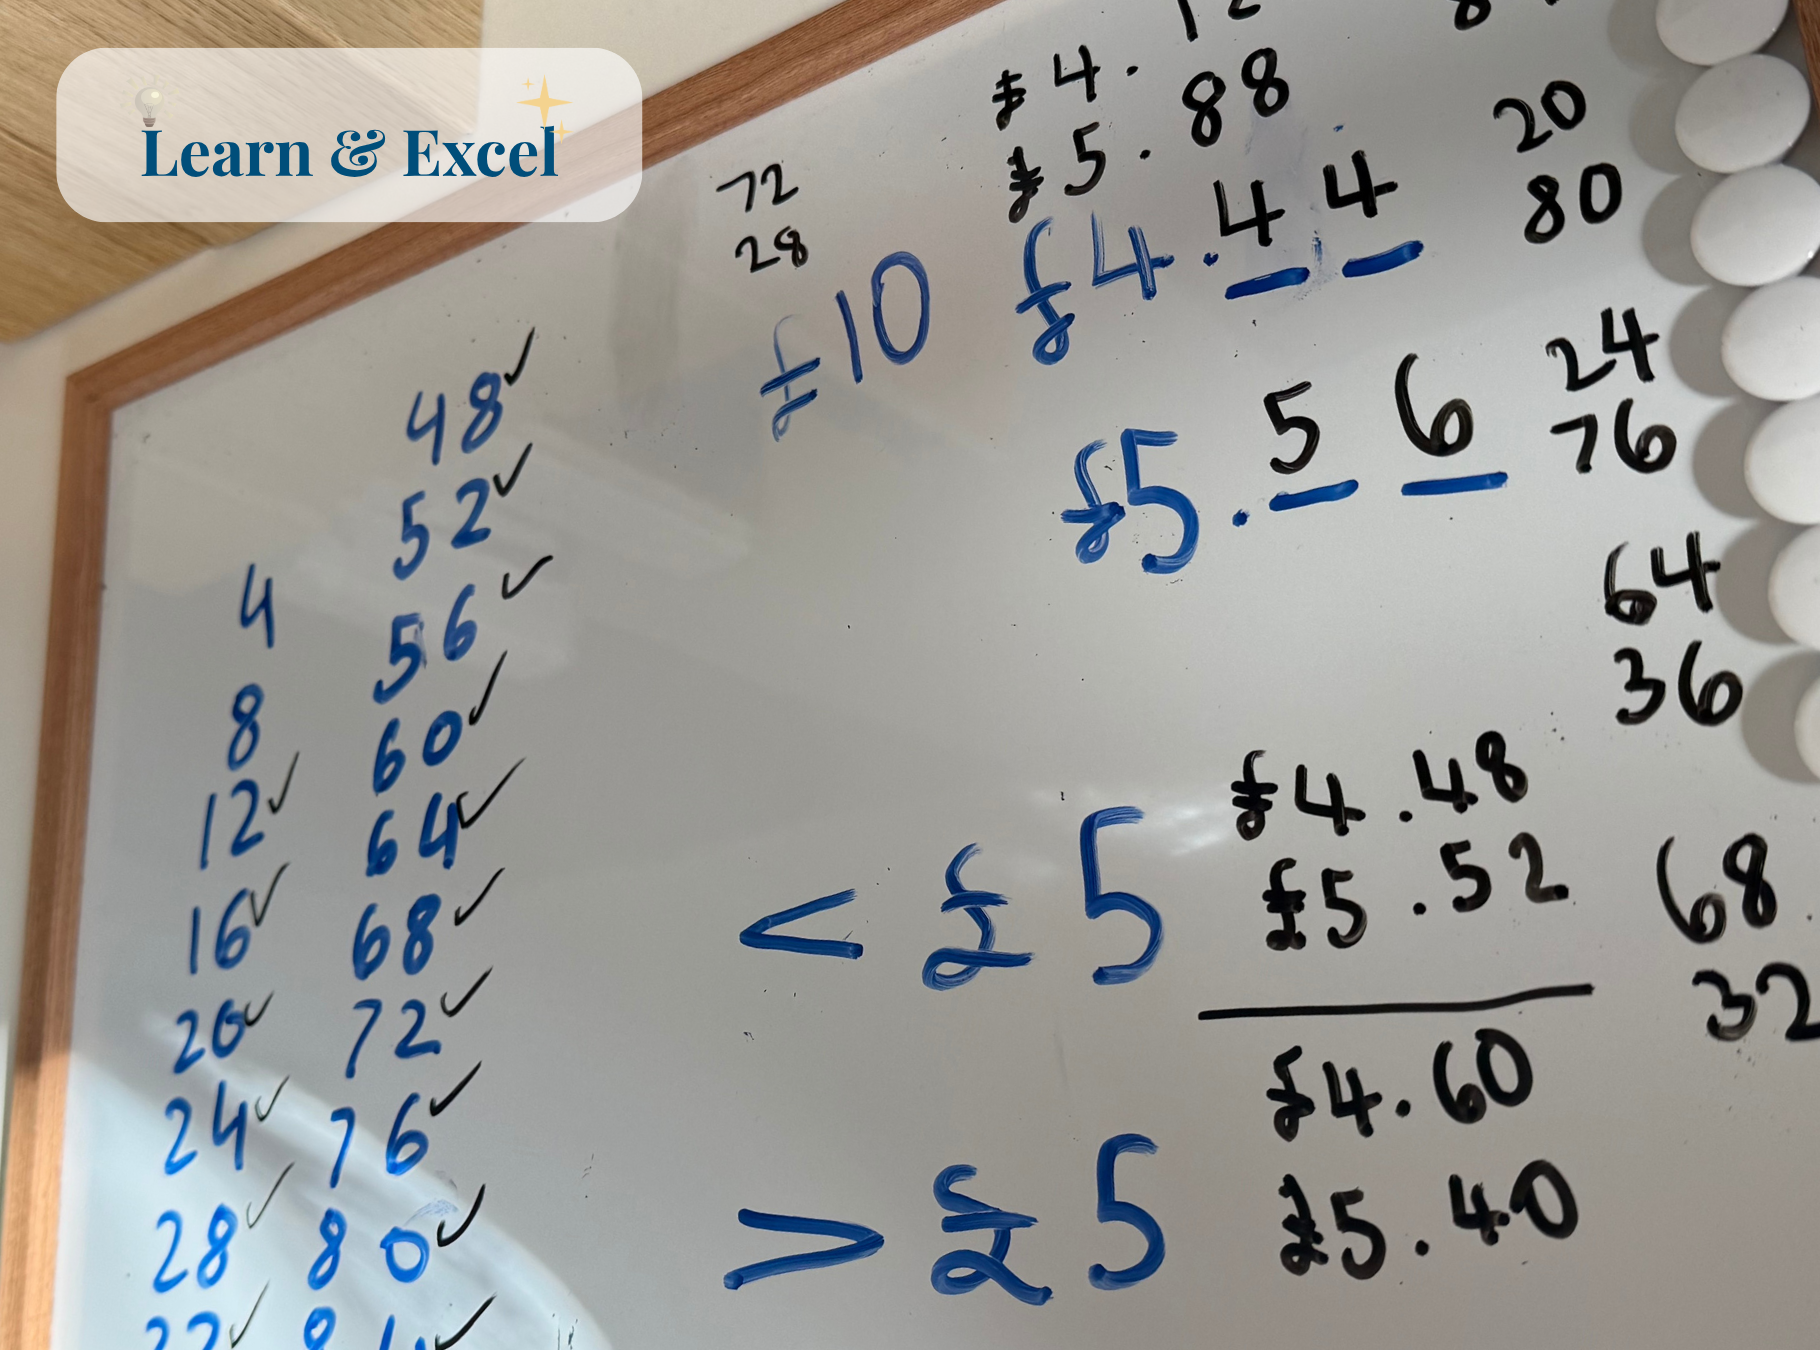 Learn & Excel
4
8
12✓
16✓
20✓
24✓
28✓
48✓
52✓
56✓
60✓
64✓
68✓
72✓
76✓
80✓
72
28
£10
£4.12
£5.88
£4.44
£5.56
< £5
> £5
£4.48
£5.52
£4.60
£5.40
20
80
24
76
64
36
68
32